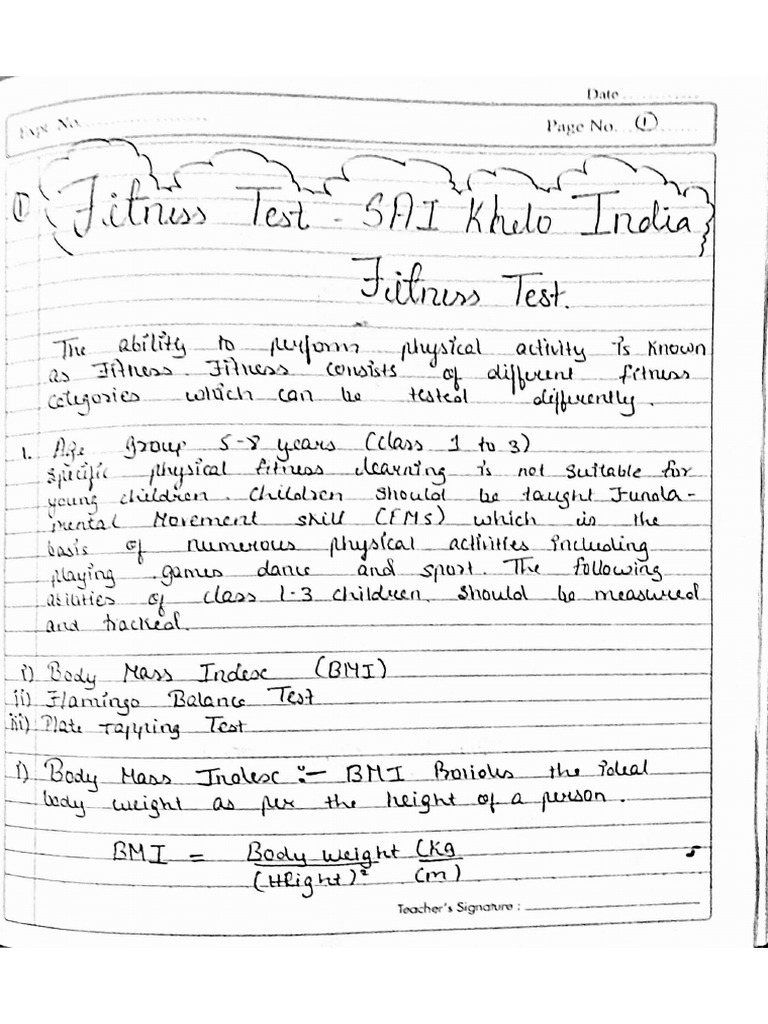 Date
Expt. No.
Page No. ①
① Fitness Test - SAI Khelo India
Fitness Test.
The ability to perform physical activity is known
as Fitness. Fitness consists of different fitness
categories which can be tested differently.
1. Age group 5-8 years (class 1 to 3)
specific physical fitness learning is not suitable for
young children. Children should be taught Funda-
mental Movement skill (FMS) which is the
basis of numerous physical activities including
playing games dance and sport. The following
abilities of class 1-3 children should be measured
and tracked.
i) Body Mass Index (BMI)
ii) Flamingo Balance Test
iii) Plate Tapping Test
i) Body Mass Index :- BMI the ideal
body weight as per the height of a person.
BMI = Body weight (kg
(Height)² (m)
Teacher's Signature :